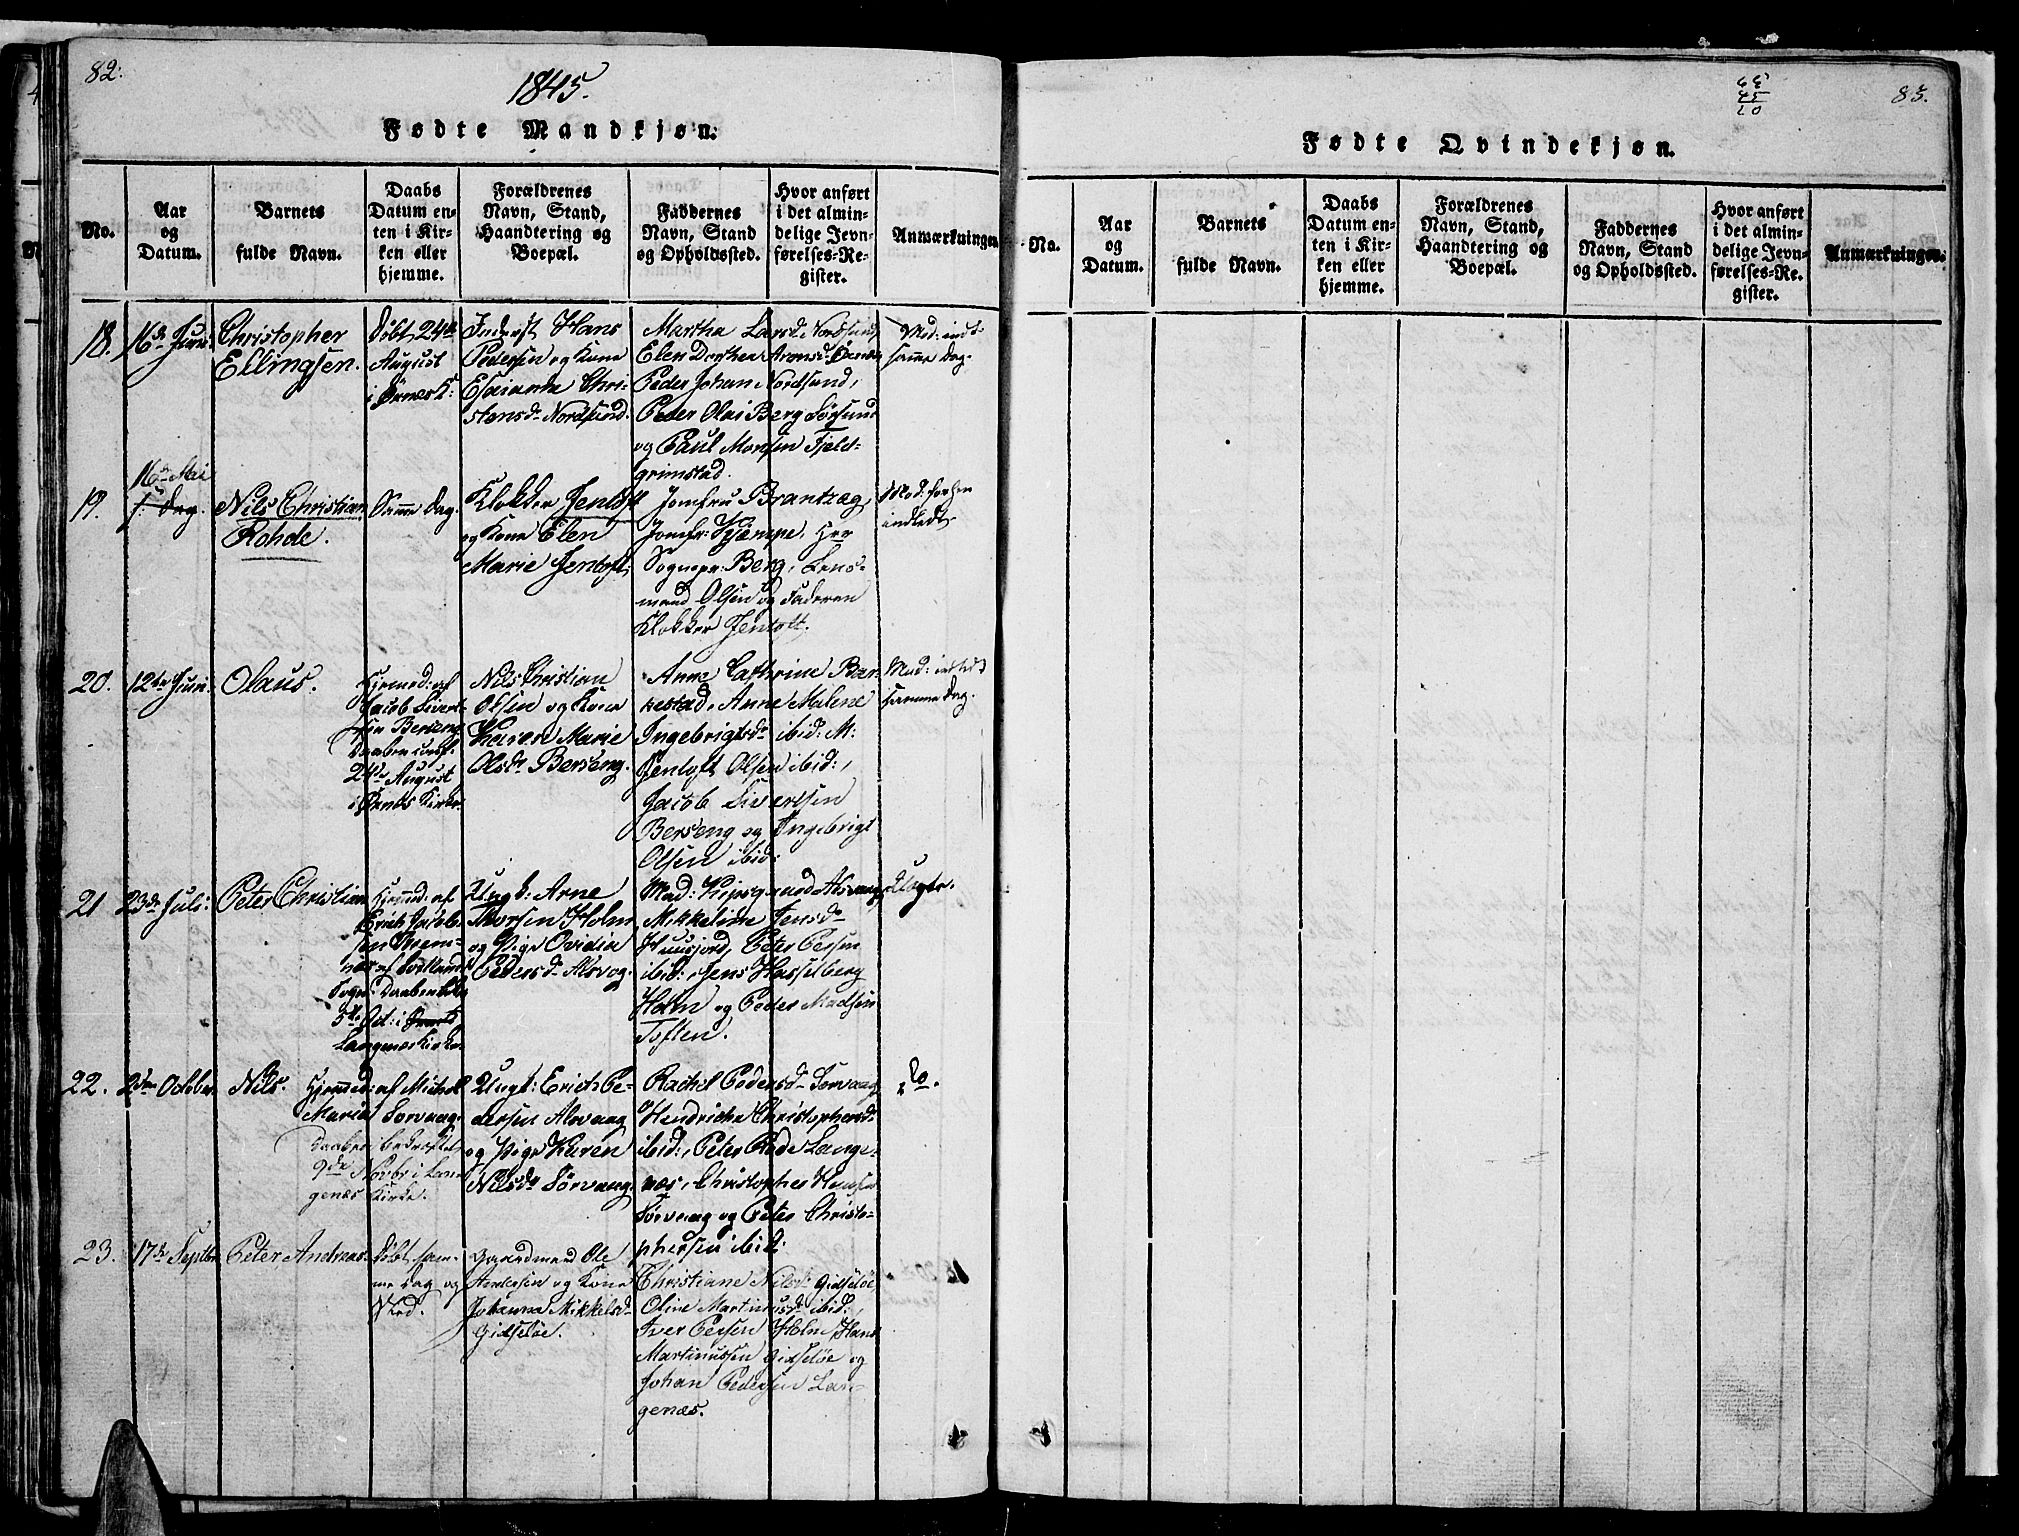 82.
1845.
Fødte Mandkjøn.
No.
Aar
og
Datum.
Barnets
fulde Navn.
Daabs
Datum en-
ten i Kir-
ken eller
hjemme.
Forældrenes
Navn, Stand,
Haandtering og
Boepæl.
Faddernes
Navn, Stand
og Opholdssted.
Hvor anført
i det almin-
delige Jevn-
førelses-Re-
gister.
Anmærkninger.
18.
16de Juni
Christopher
Ellingsen.
Døbt 24de
August
i Ørnes K:
Inderst Hans
Pedersen og Kone
Esaianna Chri-
stensdr Nordsund.
Martha Larsdr Nordsund,
Elen Dorthea Aronsd.
Peder Johan Nordsund,
Peter Olai Berg Sørsund
og Paul Monsen Fjeld-
grimstad.
Mod: indl.
samme Dag.
19.
16de Mai
f. Dag.
Nils Christian
Rohde.
Samme Dag.
Klokker Jentoft
og Kone Elen
Marie Jentoft.
Jomfru Brantzæg,
Jomfr: Kjempe, Her
Sognepr: Berg, Lens-
mand Olsen og Faderen
Klokker Jentoft.
Mod: forhen
indledt.
20.
12te Juni.
Olaus.
Hjemmed: af
Jacob Sivert-
sen Berseng
Daaben
24de August
i Ørnes Kirke.
Nils Christian
Olsen og Kone
Karen Marie
Olsdr Berseng.
Anne Cathrine Bar-
kestad, Anne Malene
Ingebrigtsdr ibid: M:
Jentoft Olsen ibid:,
Jacob Sivertsen
Berseng og Ingebrigt
Olsen ibid:
Mod: indledt
samme Dag.
21
23de Juli:
Peter Christian
Hjemmed: af
Erich Jacob-
sen
af
Sogn. Daaben
5te Oct: i
Langenæs Kirke.
Ungk: Arne
Thorsen Holm
og Pige Ovidia
Pedersdr Alsvog.
Mad: Alsvaag,
Mikkeline Jensdr
Huusjord, Peter Persen
ibid:, Jens Hasselberg
Holm og Peder Madsen
Toften.
Uægte.
22.
2den October
Nils.
Hjemmed: af Michel
Maria Sørvaag.
Daaben bekræftet
9de Novbr i Lan-
genæs Kirke.
Ungk: Erich Pe-
dersen Alsvaag
og Pige Karen
Nilsdr Sørvaag.
Rachel Pedersdr Sørvaag
Hendricha Christophersdr
ibid:, Peter Rode Lange-
næs, Christopher Hansen
Sørvaag og Peter Christo-
phersen ibid:
Do.
23.
17de Septbr
Peter Andreas.
Døbt sam-
me Dag og
Sted.
Gaardmand Ole
Andersen og Kone
Johanna Mikkelsdr
Gidsløe.
Christiane Nilsdr Gidsløe,
Oline Martinusdr ibid:,
Iver Persen Holm, Hans
Martinussen Gidsløe og
Johan Pedersen Lan-
genæs.
65
45
20
83.
Fødte Qvindekjøn.
No.
Aar
og
Datum.
Barnets
fulde Navn.
Daabs
Datum en-
ten i Kir-
ken eller
hjemme.
Forældrenes
Navn, Stand,
Haandtering og
Boepæl.
Faddernes
Navn, Stand
og Opholdssted.
Hvor anført
i det almin-
delige Jevn-
førelses-Re-
gister.
Anmærkninger.